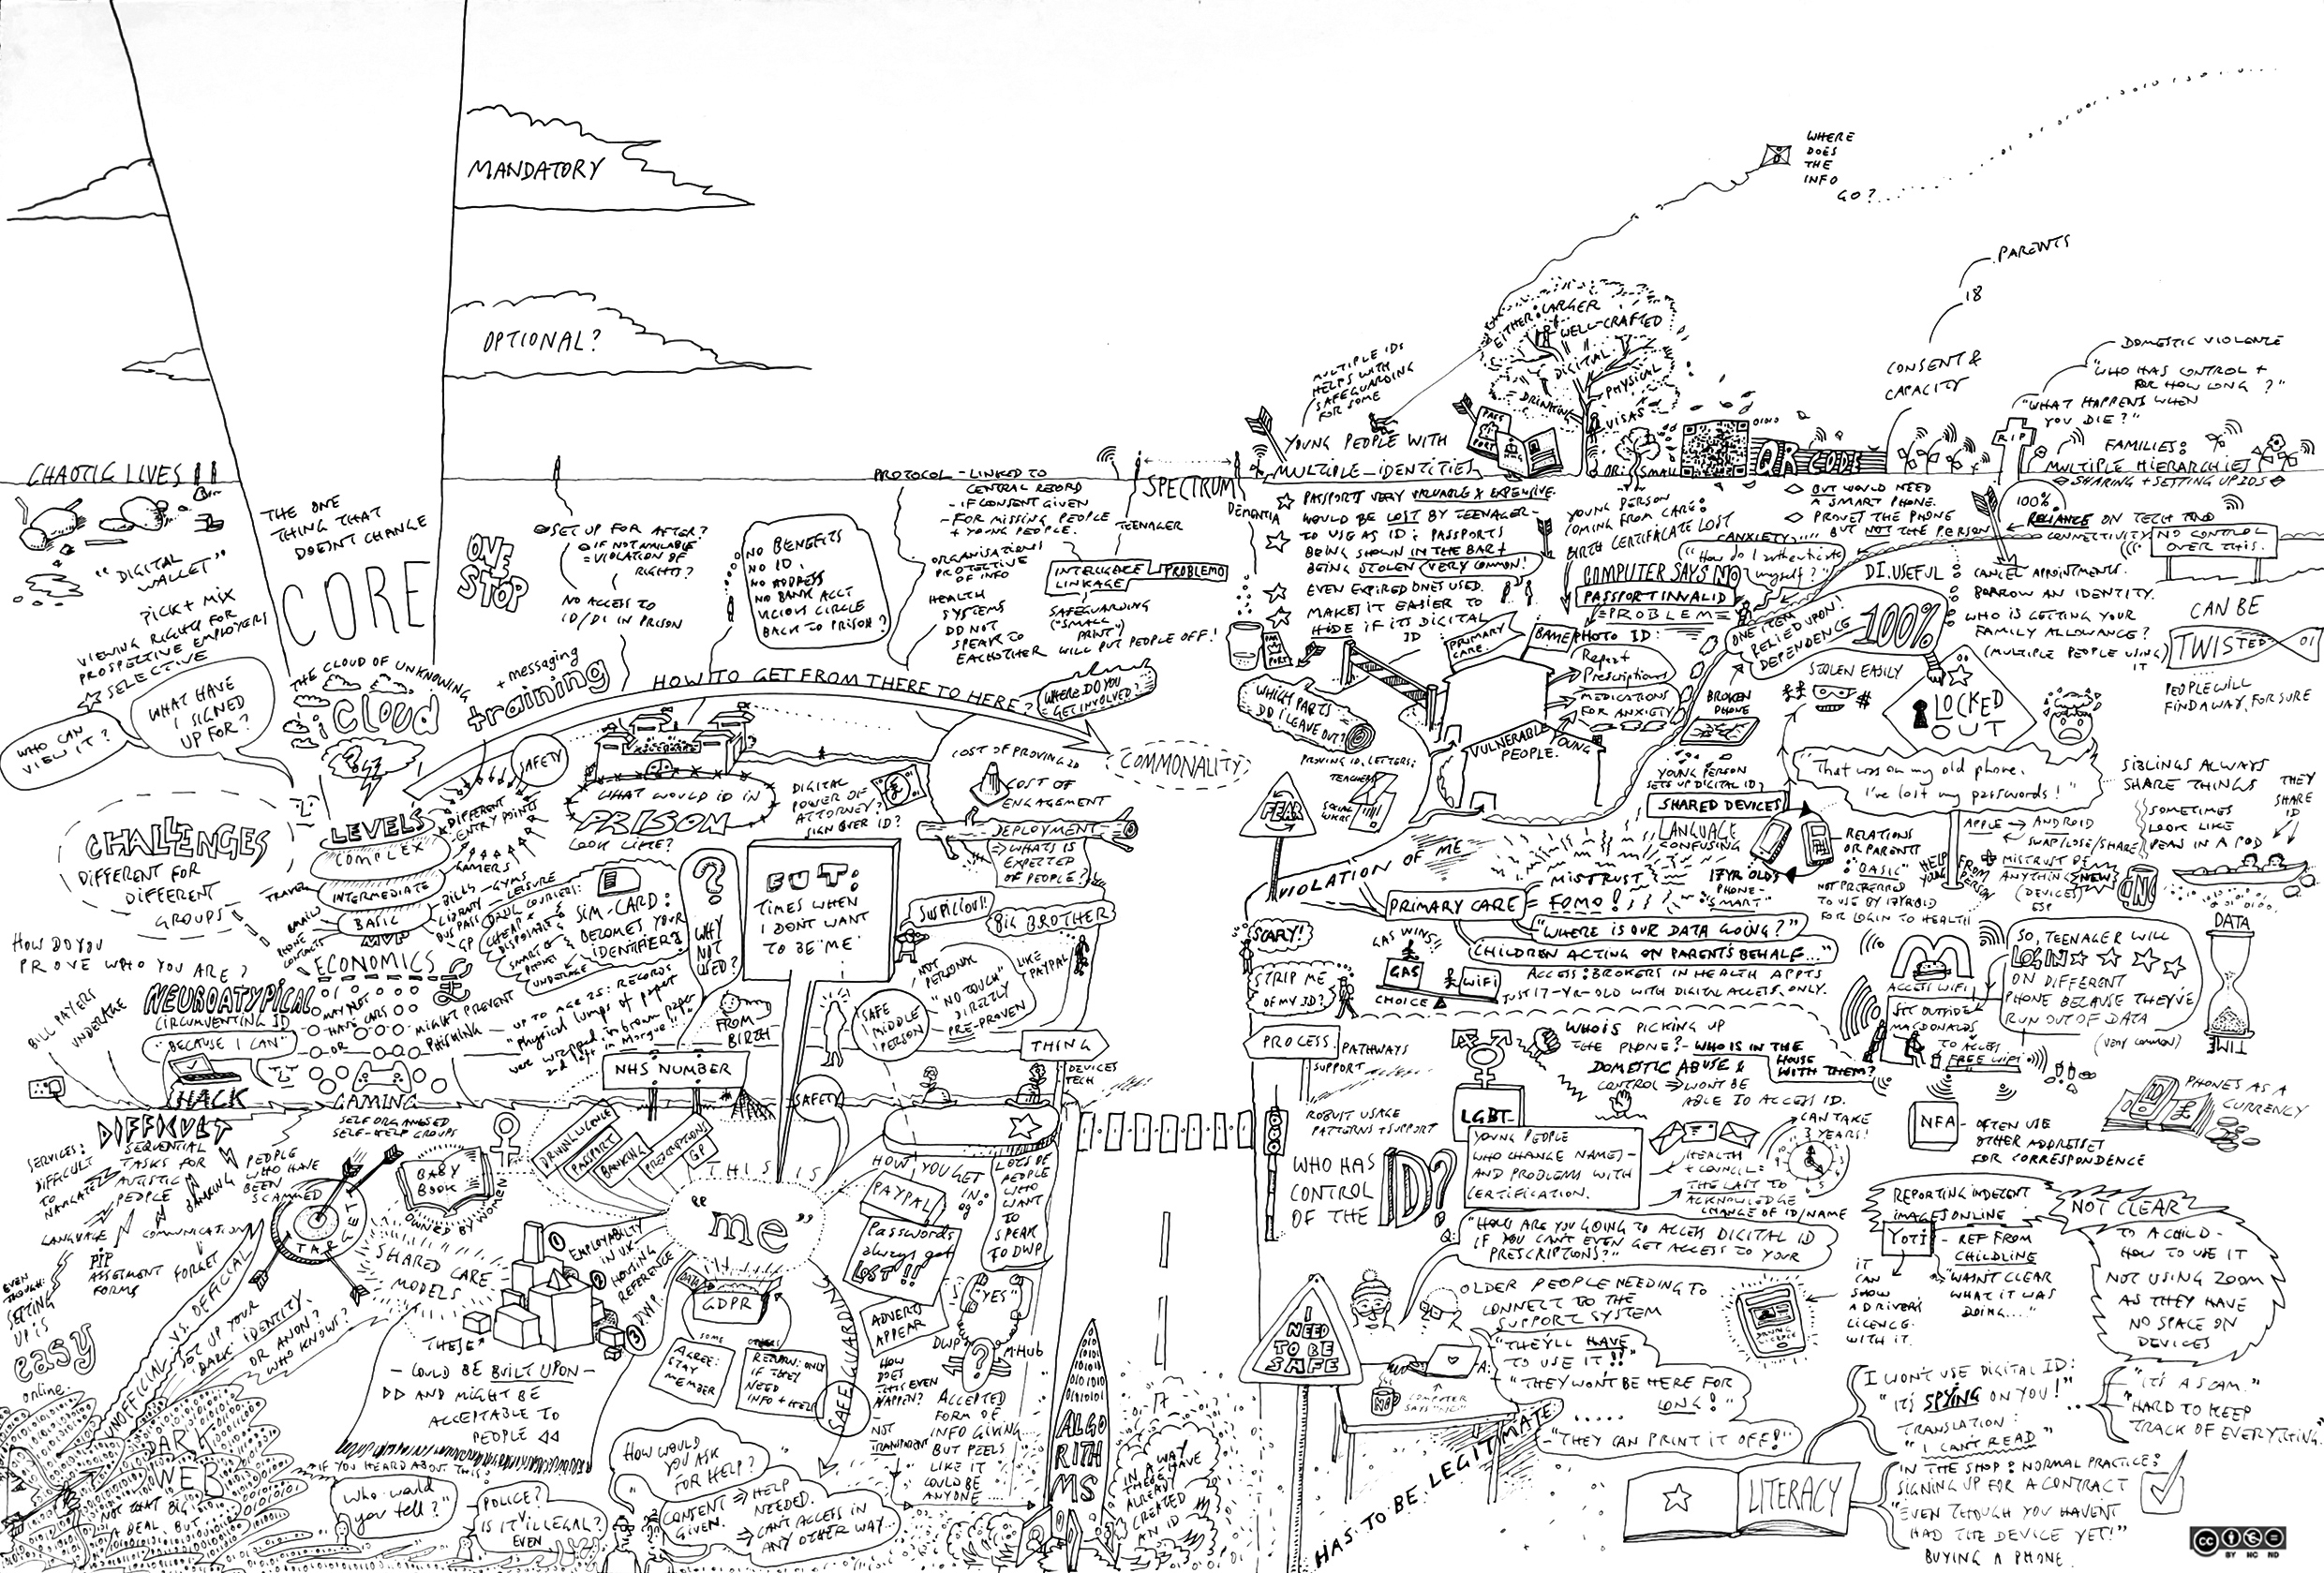 MANDATORY
OPTIONAL?
WHERE
DOES
THE
INFO
GO?
PARENTS
18
CONSENT &
CAPACITY
DOMESTIC VIOLENCE
"WHO HAS CONTROL +
FOR HOW LONG?"
"WHAT HAPPENS WHEN
YOU DIE?"
RIP
FAMILIES:
MULTIPLE HIERARCHIES
SHARING + SETTING UP IDS
EITHER: LARGER
WELL-CRAFTED
DIGITAL
PHYSICAL
DRINKING
VISAS
OR: SMALL
QR CODE
MULTIPLE IDS
HELPS WITH
SAFEGUARDING
FOR SOME
YOUNG PEOPLE WITH
MULTIPLE IDENTITIES
PASSPORT
CHAOTIC LIVES!!
"DIGITAL
WALLET"
PICK + MIX
VIEWING RIGHTS FOR
PROSPECTIVE EMPLOYERS
SELECTIVE
WHAT HAVE
I SIGNED
UP FOR?
WHO CAN
VIEW IT?
THE ONE
THING THAT
DOESN'T CHANGE
CORE
THE CLOUD OF UNKNOWING
CLOUD
ONE
STOP
SET UP FOR AFTER?
IF NOT AVAILABLE
= VIOLATION OF
RIGHTS?
NO ACCESS TO
ID/DI IN PRISON
NO BENEFITS
NO ID.
NO ADDRESS
NO BANK ACCT
VICIOUS CIRCLE
BACK TO PRISON?
PROTOCOL - LINKED TO
CENTRAL RECORD
- IF CONSENT GIVEN
- FOR MISSING PEOPLE
+ YOUNG PEOPLE.
ORGANISATIONS
PROTECTIVE
OF INFO
HEALTH
SYSTEMS
DO NOT
SPEAK TO
EACHOTHER
TEENAGER
SPECTRUM
DEMENTIA
INTELLIGENCE
LINKAGE
PROBLEMO
SAFEGUARDING
("SMALL
PRINT")
WILL PUT PEOPLE OFF!
+ messaging
training
HOW TO GET FROM THERE TO HERE?
WHERE DO YOU
GET INVOLVED?
COMMONALITY
PASSPORTS VERY VALUABLE & EXPENSIVE.
WOULD BE LOST BY TEENAGER-
TO USE AS ID: PASSPORTS
BEING SHOWN IN THE BAR +
BEING STOLEN (VERY COMMON!)
EVEN EXPIRED ONES USED.
MAKES IT EASIER TO
HIDE IF ITS DIGITAL
ID
YOUNG PERSON
COMING FROM CARE:
BIRTH CERTIFICATE LOST
BUT WOULD NEED
A SMART PHONE.
PROVES THE PHONE
BUT NOT THE PERSON
ANXIETY
"How do I authenticate
myself?"
COMPUTER SAYS NO
PASSPORT INVALID
=PROBLEM=
BAME PHOTO ID:
PRIMARY
CARE.
Repeat
Prescriptions
MEDICATIONS
FOR ANXIETY
VULNERABLE YOUNG
PEOPLE.
WHICH PARTS
DO I LEAVE OUT?
PASSPORT
100%
RELIANCE ON TECH AND
CONNECTIVITY
NO CONTROL
OVER THIS.
DI.USEFUL
CANCEL APPOINTMENTS.
BORROW AN IDENTITY.
WHO IS GETTING YOUR
FAMILY ALLOWANCE?
(MULTIPLE PEOPLE USING
IT
CAN BE
TWISTED
PEOPLE WILL
FIND A WAY, FOR SURE
ONE ITEM
RELIED UPON:
DEPENDENCE
100%
STOLEN EASILY
BROKEN
PHONE
LOCKED
OUT
"That was on my old phone.
I've lost my passwords!"
SIBLINGS ALWAYS
SHARE THINGS
THEY
SHARE
ID
SOMETIMES
LOOK LIKE
PEAS IN A POD
APPLE → ANDROID
SWAP/LOSE/SHARE
+ MISTRUST OF
ANYTHING NEW
(DEVICES)
ESP
CHALLENGES
DIFFERENT FOR
DIFFERENT
GROUPS
HOW DO YOU
PROVE WHO YOU ARE?
BILL PAYERS
UNDERAGE
NEUROATYPICAL
CIRCUMVENTING ID
"BECAUSE I CAN"
HACK
LEVELS
COMPLEX
INTERMEDIATE
BASIC
MVP
DIFFERENT
ENTRY POINTS
GAMERS
TRAVEL
EMAILS
PHONE
CONTACTS
BILLS - GYMS
LIBRARY - LEISURE
BUS PASS
GP
ECONOMICS
MAY NOT
HAVE CARDS
OR
MIGHT PREVENT
PHISHING
GAMING
SELF ORGANISED
SELF-HELP GROUPS
SAFETY
WHAT WOULD ID IN
PRISON
LOOK LIKE?
DRUG COURIERS:
CHEAP &
DISPOSABLE
SMART
PHONE
UNDERAGE
SIM-CARD:
BECOMES YOUR
IDENTIFIER?
UP TO AGE 25: RECORDS
"physical lumps of paper
were wrapped in brown paper
and left in Morgue!!"
?
WHY
NOT
USED?
FROM
BIRTH
NHS NUMBER
DIGITAL
POWER OF
ATTORNEY?
SIGN OVER ID?
COST OF PROVING ID
COST OF
ENGAGEMENT
DEPLOYMENT
WHATS IS
EXPECTED
OF PEOPLE?
BUT:
TIMES WHEN
I DONT WANT
TO BE "ME"
SUSPICIOUS!
BIG BROTHER
SAFE
MIDDLE
PERSON
NOT
PERSONAL
"NO TOUCH"
DIRECTLY
PRE-PROVEN
LIKE
PAYPAL
THING
DEVICES
TECH
SAFETY
PROVING ID, LETTERS:
TEACHERS
SOCIAL
WORKER
FEAR
VIOLATION OF ME
SCARY!
STRIP ME
OF MY ID?
YOUNG PERSON
SETS UP DIGITAL ID?
SHARED DEVICES
LANGUAGE
CONFUSING
MISTRUST
17YR OLDS
PHONE-
"SMART"
PRIMARY CARE = FOMO!
"WHERE IS OUR DATA GOING?"
CHILDREN ACTING ON PARENTS BEHALF...
ACCESS: BROKERS IN HEALTH APPTS
JUST 17-YR-OLD WITH DIGITAL ACCESS ONLY.
GAS WINS!!
GAS
WIFI
CHOICE
RELATIONS
OR PARENTS
"BASIC"
NOT PREFERRED
TO USE BY 17YR OLD
FOR LOGIN TO HEALTH
HELP
FROM
YOUNG
PERSON
ACCESS WIFI
SIT OUTSIDE
MACDONALDS
TO ACCESS
FREE WIFI
SO, TEENAGER WILL
LOG IN
ON DIFFERENT
PHONE BECAUSE THEY'VE
RUN OUT OF DATA
(VERY COMMON)
DATA
TIME
PROCESS.
PATHWAYS
SUPPORT
ROBUST USAGE
PATTERNS + SUPPORT
WHO IS PICKING UP
THE PHONE? - WHO IS IN THE
HOUSE
WITH THEM?
DOMESTIC ABUSE &
CONTROL → WON'T BE
ABLE TO ACCESS ID.
LGBT-
YOUNG PEOPLE
WHO CHANGE NAMES-
AND PROBLEMS WITH
CERTIFICATION.
CAN TAKE
3 YEARS!
HEALTH
+ COUNCIL =
THE LAST TO
ACKNOWLEDGE
CHANGE OF ID/NAME
NFA
- OFTEN USE
OTHER ADDRESSES
FOR CORRESPONDENCE
PHONES AS A
CURRENCY
WHO HAS
CONTROL
OF THE ID?
Q: "HOW ARE YOU GOING TO ACCESS DIGITAL ID
IF YOU CAN'T EVEN GET ACCESS TO YOUR
PRESCRIPTIONS?"
OLDER PEOPLE NEEDING TO
CONNECT TO THE
SUPPORT SYSTEM
A:
"THEY'LL HAVE
TO USE IT!!"
"THEY WON'T BE HERE FOR
LONG!"
"THEY CAN PRINT IT OFF!"
COMPUTER
SAYS "NO"
NO
I
NEED
TO BE
SAFE
HAS TO BE LEGITIMATE
REPORTING INDECENT
IMAGES ONLINE
YOTI
- REF FROM
CHILDLINE
"WASN'T CLEAR
WHAT IT WAS
DOING..."
IT
CAN
SHOW
A DRIVERS
LICENCE.
WITH IT.
NOT CLEAR
TO A CHILD -
HOW TO USE IT
NOT USING ZOOM
AS THEY HAVE
NO SPACE ON
DEVICES
I WON'T USE DIGITAL ID:
"IT'S SPYING ON YOU!"
TRANSLATION:
"I CAN'T READ"
"IT'S A SCAM."
"HARD TO KEEP
TRACK OF EVERYTHING."
IN THE SHOP: NORMAL PRACTICE:
SIGNING UP FOR A CONTRACT
"EVEN THOUGH YOU HAVEN'T
HAD THE DEVICE YET!"
BUYING A PHONE.
LITERACY
DIFFICULT
SERVICES:
DIFFICULT
TO
NAVIGATE
SEQUENTIAL
TASKS FOR
AUTISTIC
PEOPLE
PEOPLE
WHO HAVE
BEEN
SCAMMED
BANKING
LANGUAGE
COMMUNICATION
PIP
ASSESSMENT
FORMS
FORGET
EVEN
THOUGH:
SETTING
UP IS
easy
online.
UNOFFICIAL VS. OFFICIAL
SET UP YOUR
DARK IDENTITY.
OR ANON?
WHO KNOWS?
DARK
WEB
NOT THAT BIG
A DEAL, BUT...
TARGET
BABY
BOOK
OWNED BY WOMEN
SHARED CARE
MODELS
DRIVING LICENCE
PASSPORT
BANKING
PRESCRIPTIONS
GP
THIS IS
"me"
1 EMPLOYABILITY
IN UK
2 HOUSING
REFERENCE
3 DWP.
THESE
- COULD BE BUILT UPON -
AND MIGHT BE
ACCEPTABLE TO
PEOPLE
IF YOU HEARD ABOUT THIS:
"Who would
you tell?"
POLICE?
IS IT ILLEGAL?
EVEN
DATA
GDPR
SOME
AGREE:
STAY
MEMBER
OTHERS
RETURN: ONLY
IF THEY
NEED
INFO + HELP
SAFEGUARDING
HOW WOULD
YOU ASK
FOR HELP?
CONSENT
GIVEN.
HELP
NEEDED.
CAN'T ACCESS IN
ANY OTHER WAY...
HOW YOU GET
IN:
eg
PAYPAL
Passwords
always get
LOST!!
ADVERTS
APPEAR
HOW
DOES
THIS EVEN
HAPPEN?
-
NOT
TRANSPARENT
LOTS OF
PEOPLE
WHO
WANT
TO
SPEAK
TO DWP
"YES"
DWP
M-HUB
?
ACCEPTED
FORM OF
INFO GIVING...
BUT FEELS
LIKE IT
COULD BE
ANYONE....
ALGO
RITH
MS
IN A WAY
THESE HAVE
ALREADY
CREATED
AN ID
CC
BY NC ND